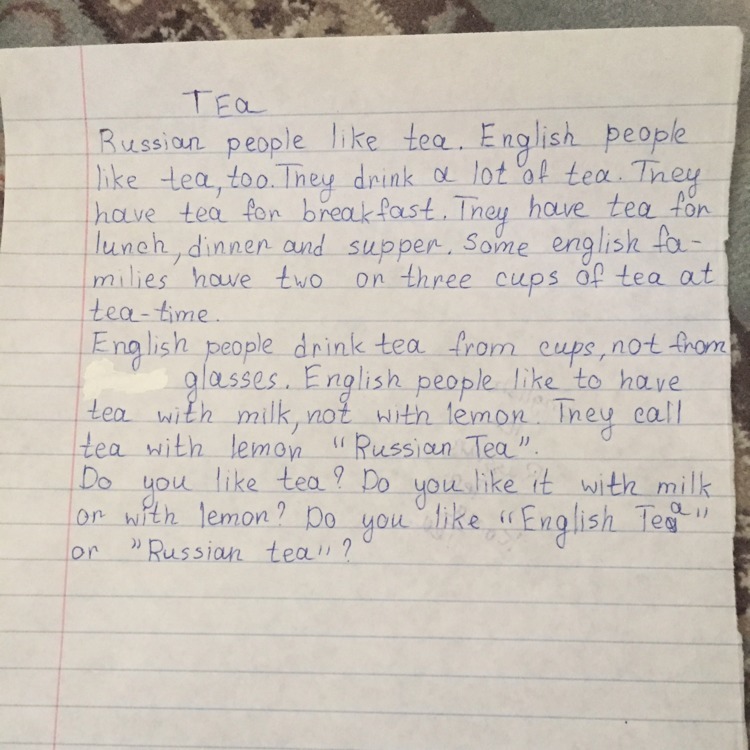 TEa
Russian people like tea. English people
like tea, too. They drink a lot of tea. They
have tea for breakfast. They have tea for
lunch, dinner and supper. Some english fa-
milies have two or three cups of tea at
tea-time.
English people drink tea from cups, not from
glasses. English people like to have
tea with milk, not with lemon. They call
tea with lemon "Russian Tea".
Do you like tea? Do you like it with milk
or with lemon? Do you like "English Tea"
or "Russian tea"?